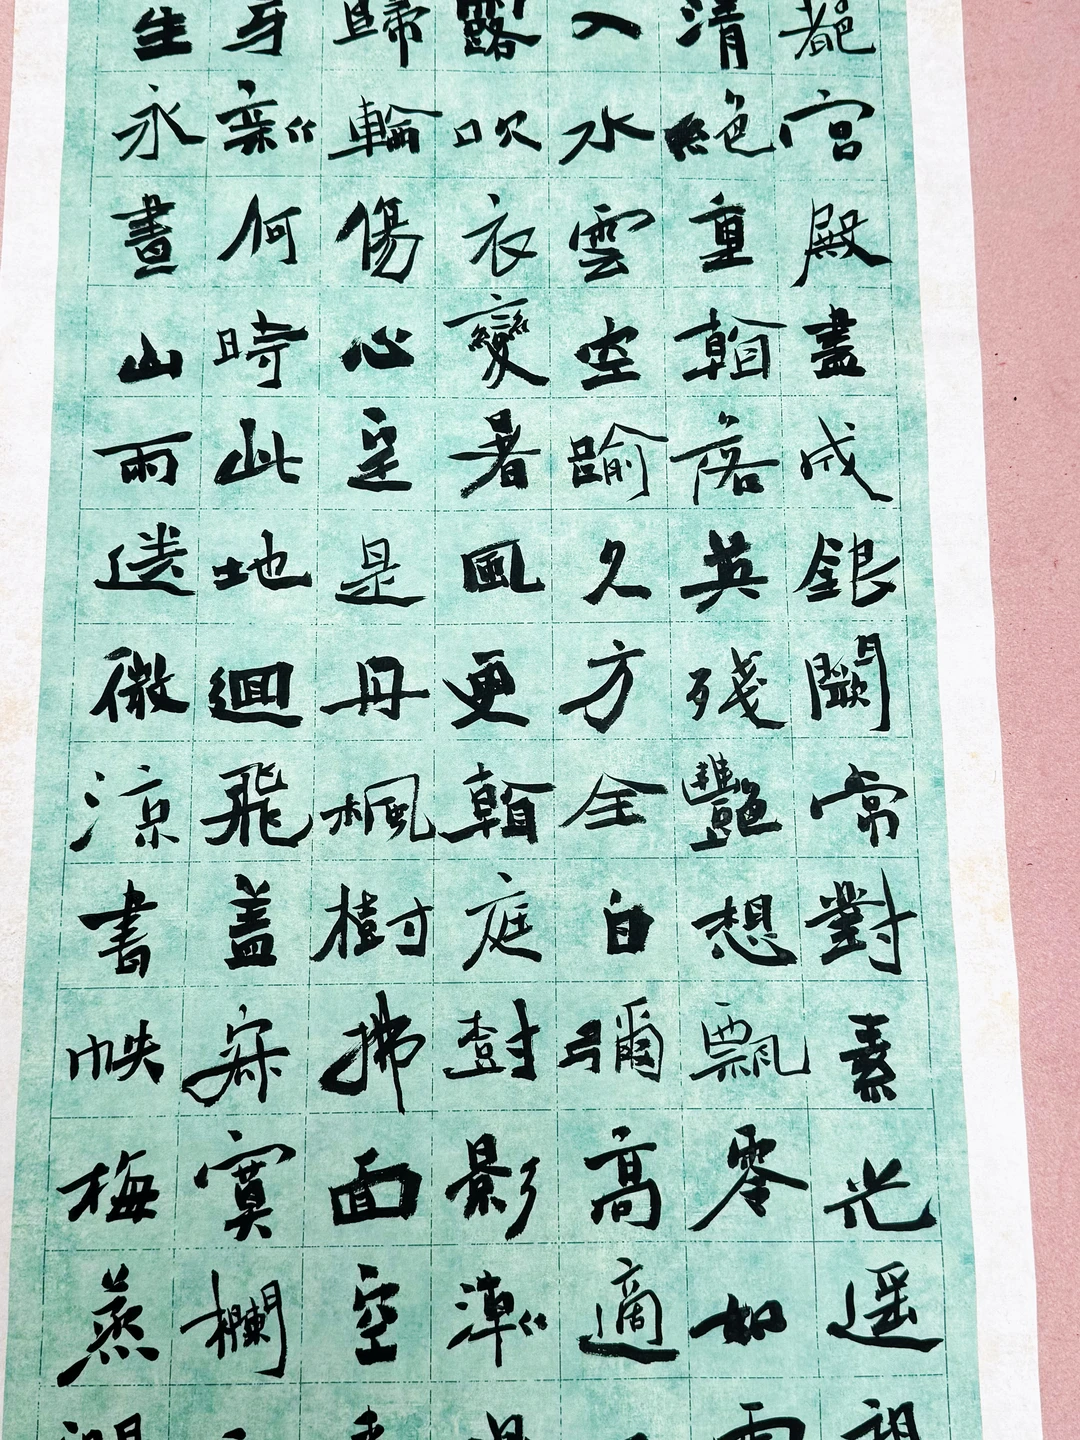 宮殿盡成銀闕常對素光遙
清絕重看落英殘艷想飄零如
入水雲空踰久方全白彌高適
露吹衣變暑風更看庭樹影
歸輪傷心定是丹楓樹拂面空
身何時此地迴飛蓋寂寞欄
生永晝山雨送微涼書帙梅蒸